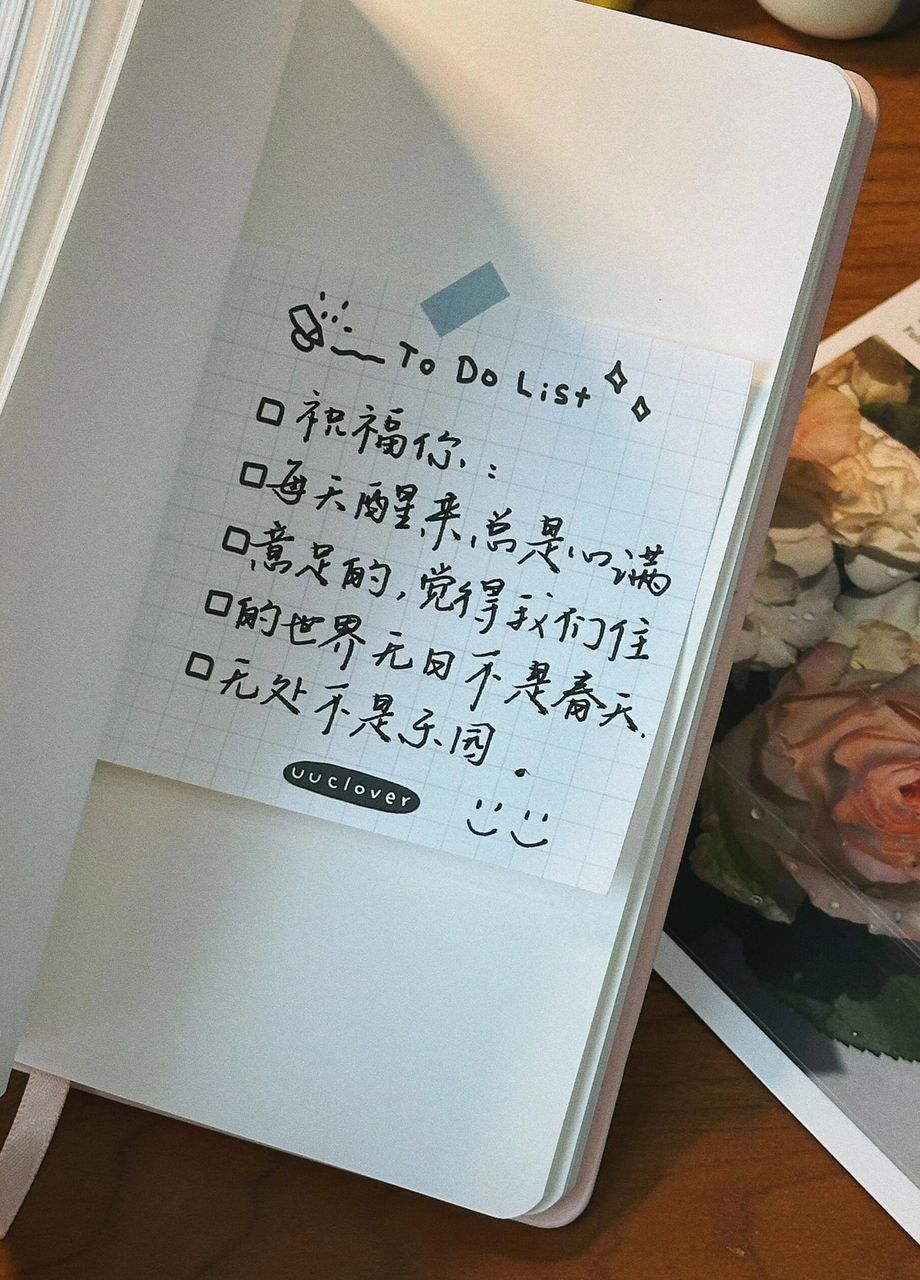 To Do List
祝福你:
每天醒来,总是心满
意足的,觉得我们住
的世界无日不是春天.
无处不是乐园.
uuclover